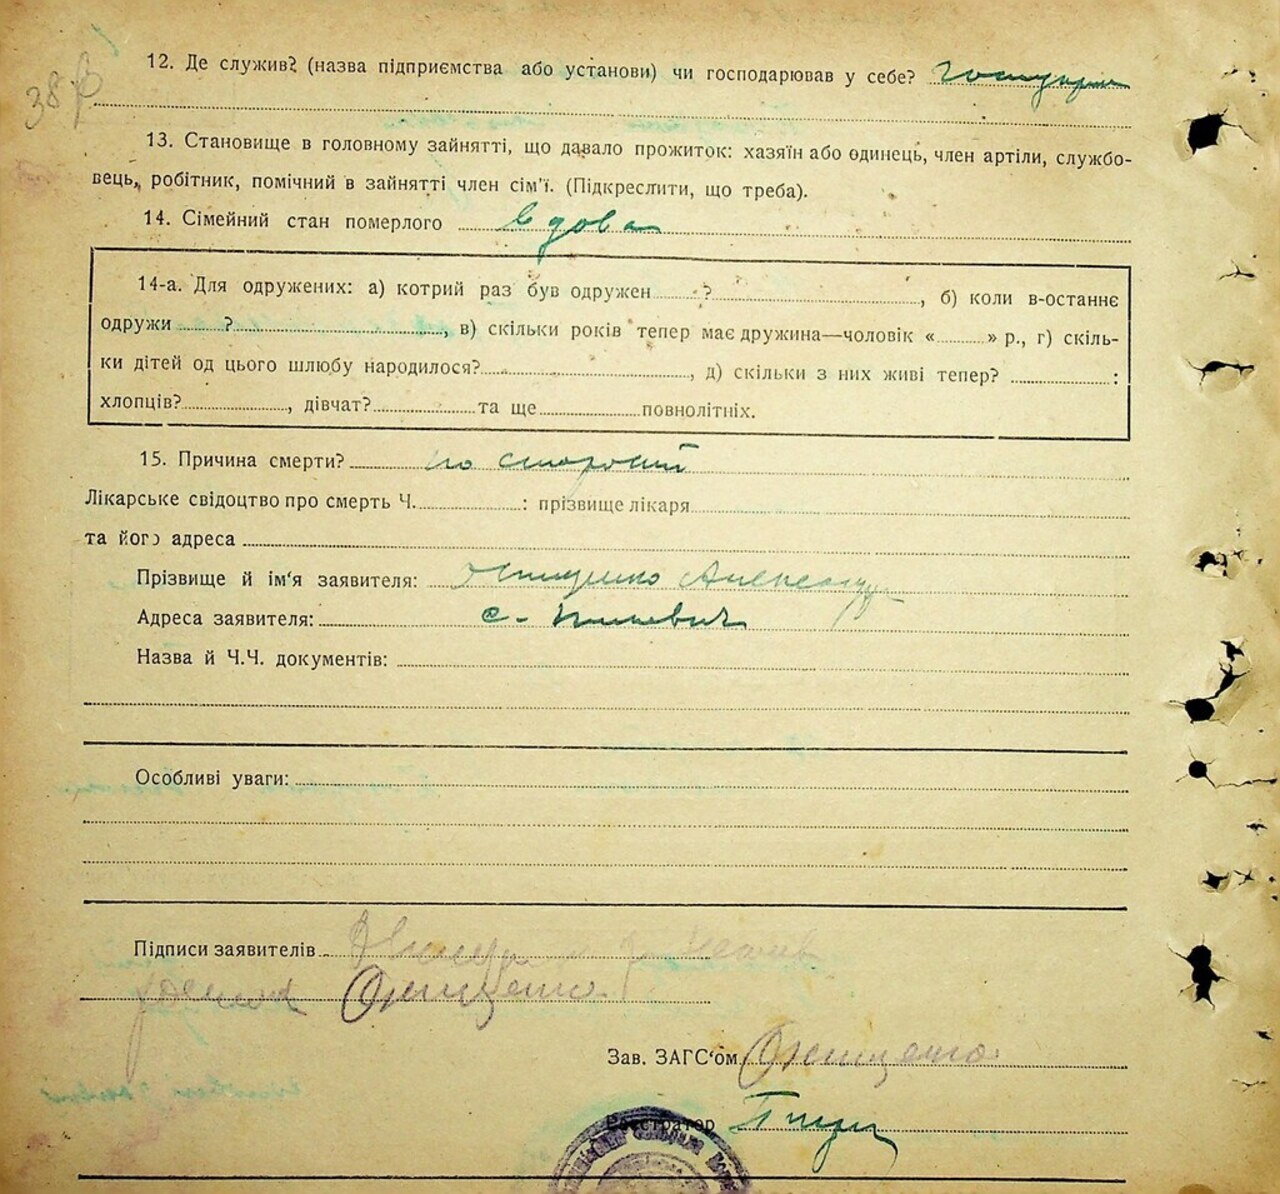 38
12. Де служив? (назва підприємства або установи) чи господарював у себе?
13. Становище в головному зайнятті, що давало прожиток: хазяїн або одинець, член артіли, службо-
вець, робітник, помічний в зайнятті член сім'ї. (Підкреслити, що треба).
14. Сімейний стан померлого вдова
14-а. Для одружених: а) котрий раз був одружен ? , б) коли в-останнє
одружи ? , в) скільки років тепер має дружина—чоловік « » р., г) скіль-
ки дітей од цього шлюбу народилося? , д) скільки з них живі тепер? :
хлопців? , дівчат? та ще повнолітніх.
15. Причина смерти? по старости
Лікарське свідоцтво про смерть Ч. : прізвище лікаря
та його адреса
Прізвище й ім'я заявителя:
Адреса заявителя: с.
Назва й Ч.Ч. документів:
Особливі уваги:
Підписи заявителів
Онищенко
Зав. ЗАГС'ом Онищенко
Реєстратор